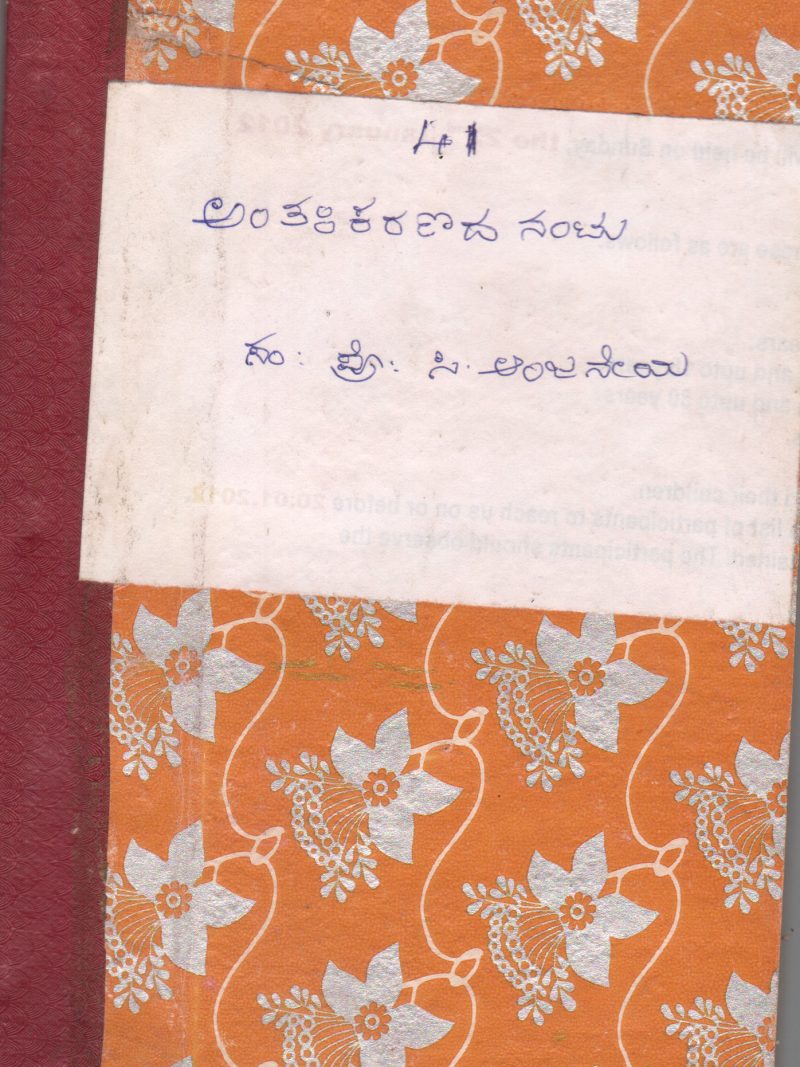 41
ಅಂತಃಕರಣದ ನಂಟು
ಸಂ: ಪ್ರೊ: ಸಿ. ಆಂಜನೇಯ